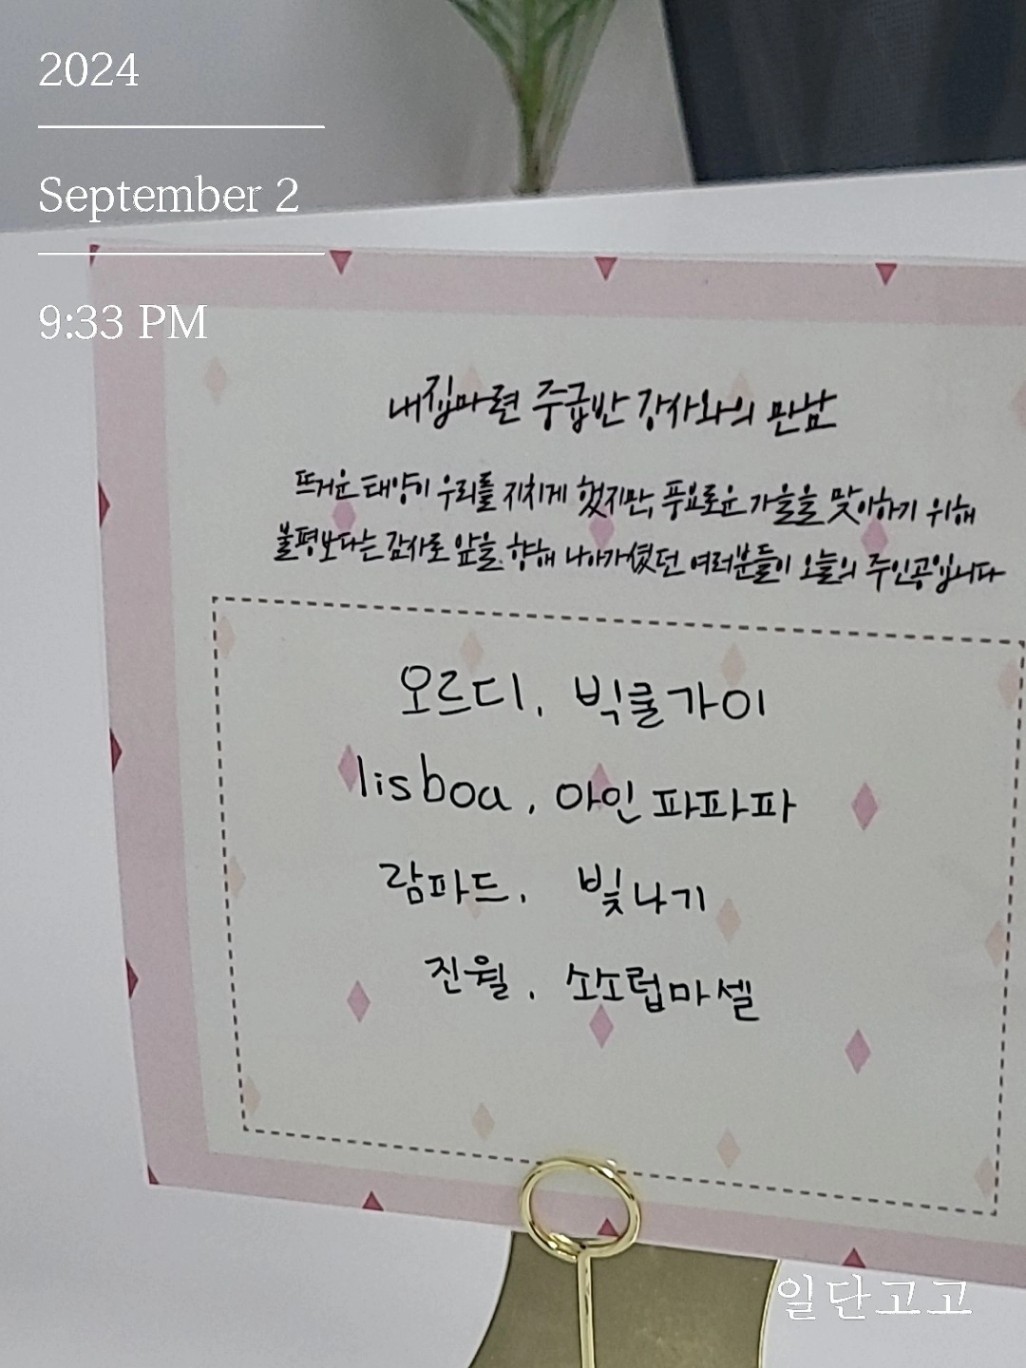 2024
September 2
9:33 PM
내집마련 중급반 강사와의 만남
뜨거운 태양이 우리를 지치게 했지만, 풍요로운 가을을 맞이하기 위해
불평보다는 감사로 앞을 향해 나아가셨던 여러분들이 오늘의 주인공입니다
오르디, 빅쿨가이
lisboa, 아인파파파
람파드, 빛나기
진월, 소소럽마셀
일단고고